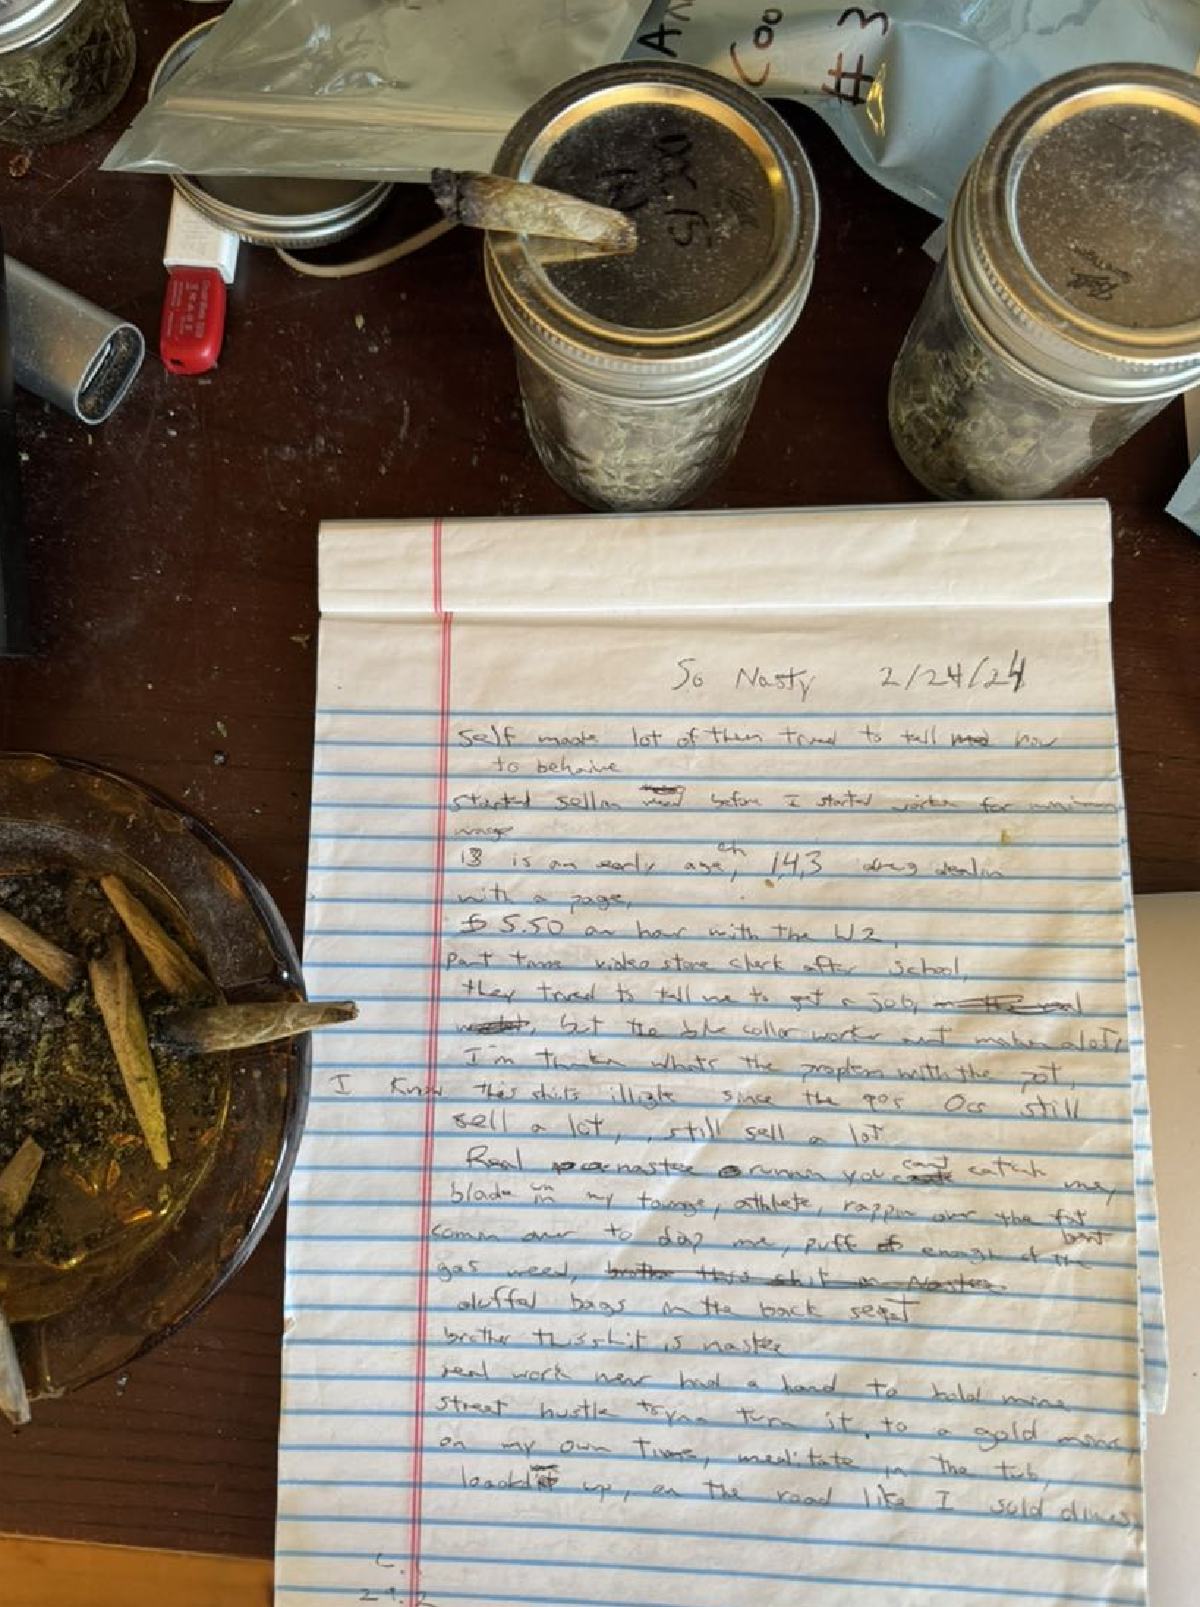 Coo
#3
So Nasty 2/24/24
self made lot of them tried to tell how
to behaive
started sellin weed before I started workin for minimum
wage
13 is an early age, eh 143 drug dealin
with a page,
$5.50 an hour with the W2,
part time video store clerk after school,
they tried to tell me to get a job,
but the blue collar worker aint makin alot,
I'm thinkin whats the problem with the pot,
I Know this shits illigle since the 90s OGs still
sell a lot, still sell a lot
Real nastee runnin you cant catch me,
blade in my tounge, athlete, rappin over the fat
beat
comin over to dap me, puff enough of the
gas weed, brother this shit is Nastee
duffel bags in the back seat
brother this shit is nastee
real work never had a hand to hold mine
street hustle tryna turn it to a gold mine,
on my own time, meditate in the tub,
loaded up, on the road like I sold dimes,